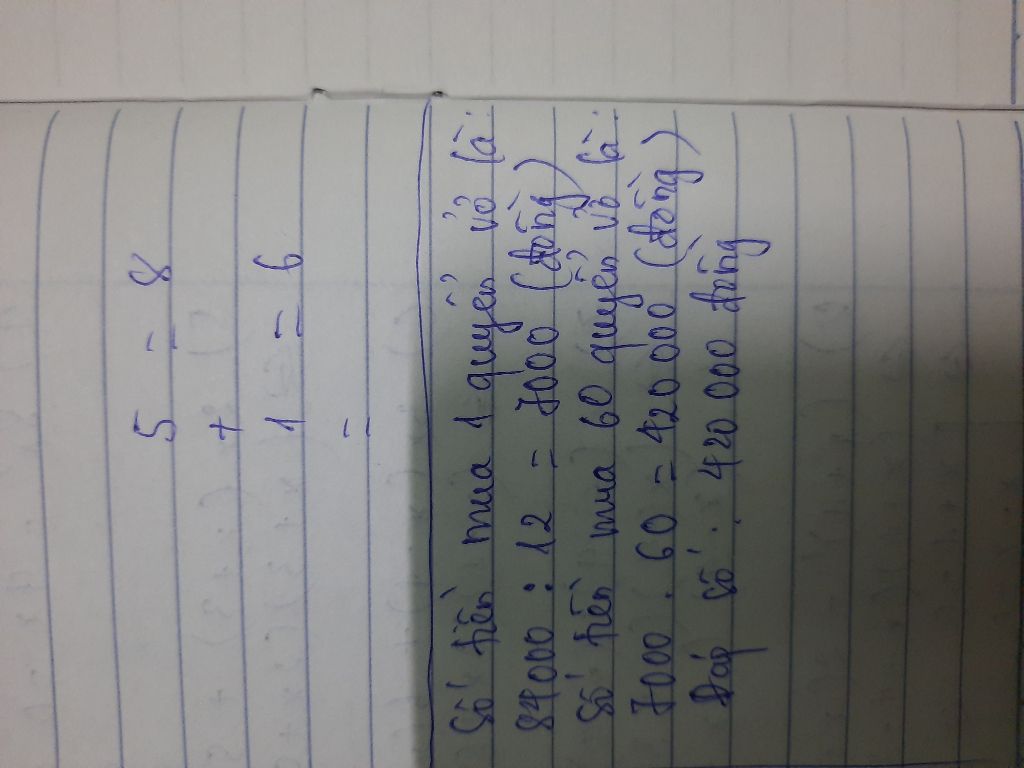 5 - 8
+
1 = 6
=
Số tiền mua 1 quyển vở là:
84000 : 12 = 7000 (đồng)
Số tiền mua 60 quyển vở là:
7000 . 60 = 420 000 (đồng)
Đáp số: 420 000 đồng